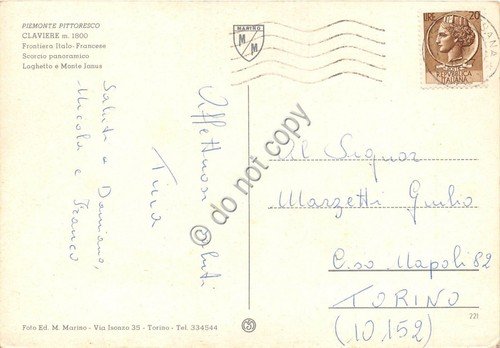 PIEMONTE PITTORESCO
CLAVIERE m. 1800
Frontiera Italo-Francese
Scorcio panoramico
Laghetto e Monte Janus
MARINO
M M
LIRE 20
REPUBBLICA
ITALIANA
Saluti a Damiano,
Nicola e Franco
Affettuosi Saluti
Tina
© do not copy
Al Signor
Marzetti Giulio
C.so Napoli 82
TORINO
(10152)
221
Foto Ed. M. Marino - Via Isonzo 35 - Torino - Tel. 334544